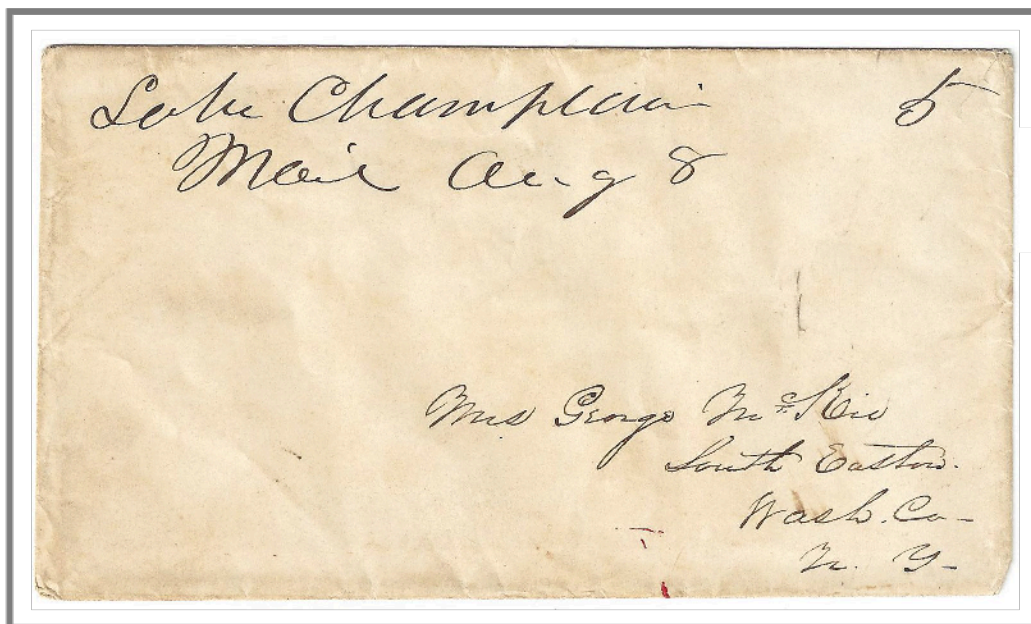 Lake Champlain
5
Mail Aug 8
Mrs George McKie
South Easton.
Wash. Co-
N. Y-